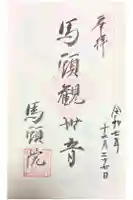 奉拝
馬頭観世音
馬頭院
令和七年
十二月二十七日